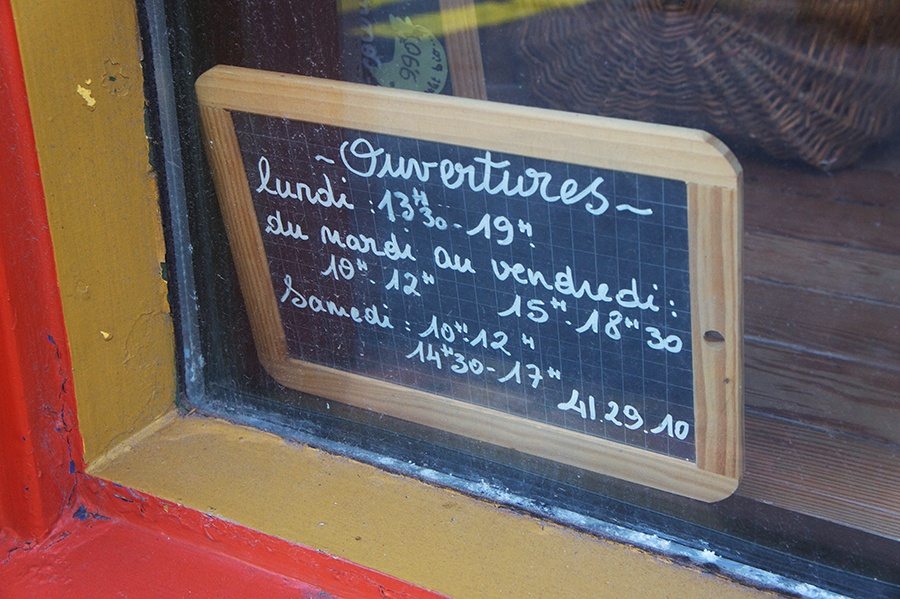 ~ Ouvertures ~
lundi : 13H30 - 19H.
du mardi au vendredi :
10H - 12H 15H - 18H30
Samedi : 10H. 12H
14H30 - 17H
41.29.10